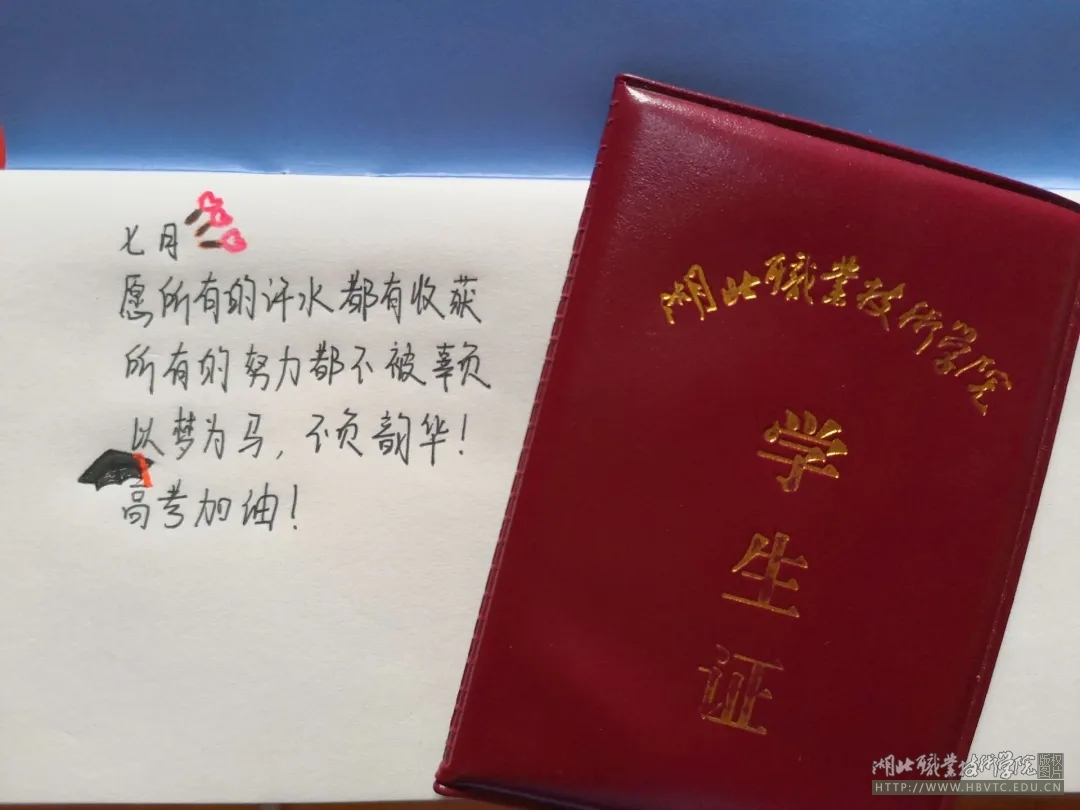 七月
愿所有的汗水都有收获
所有的努力都不被辜负
以梦为马，不负韵华！
高考加油！
湖北職業技術学院
学生证
湖北職業技術学院
版权图片
HTTP://WWW.HBVTC.EDU.CN